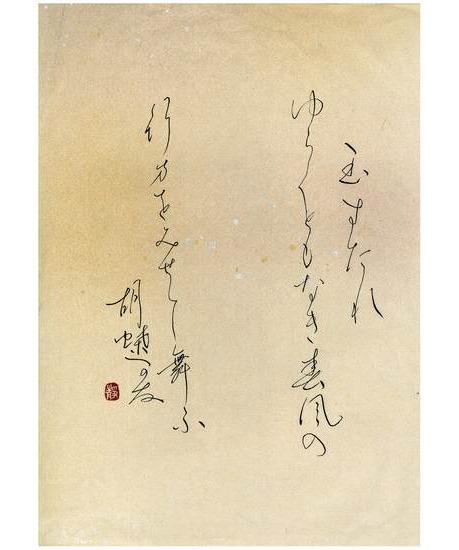 玉すだれ
ゆらくともなき春風の
行方をみせし舞ふ
胡蝶の友